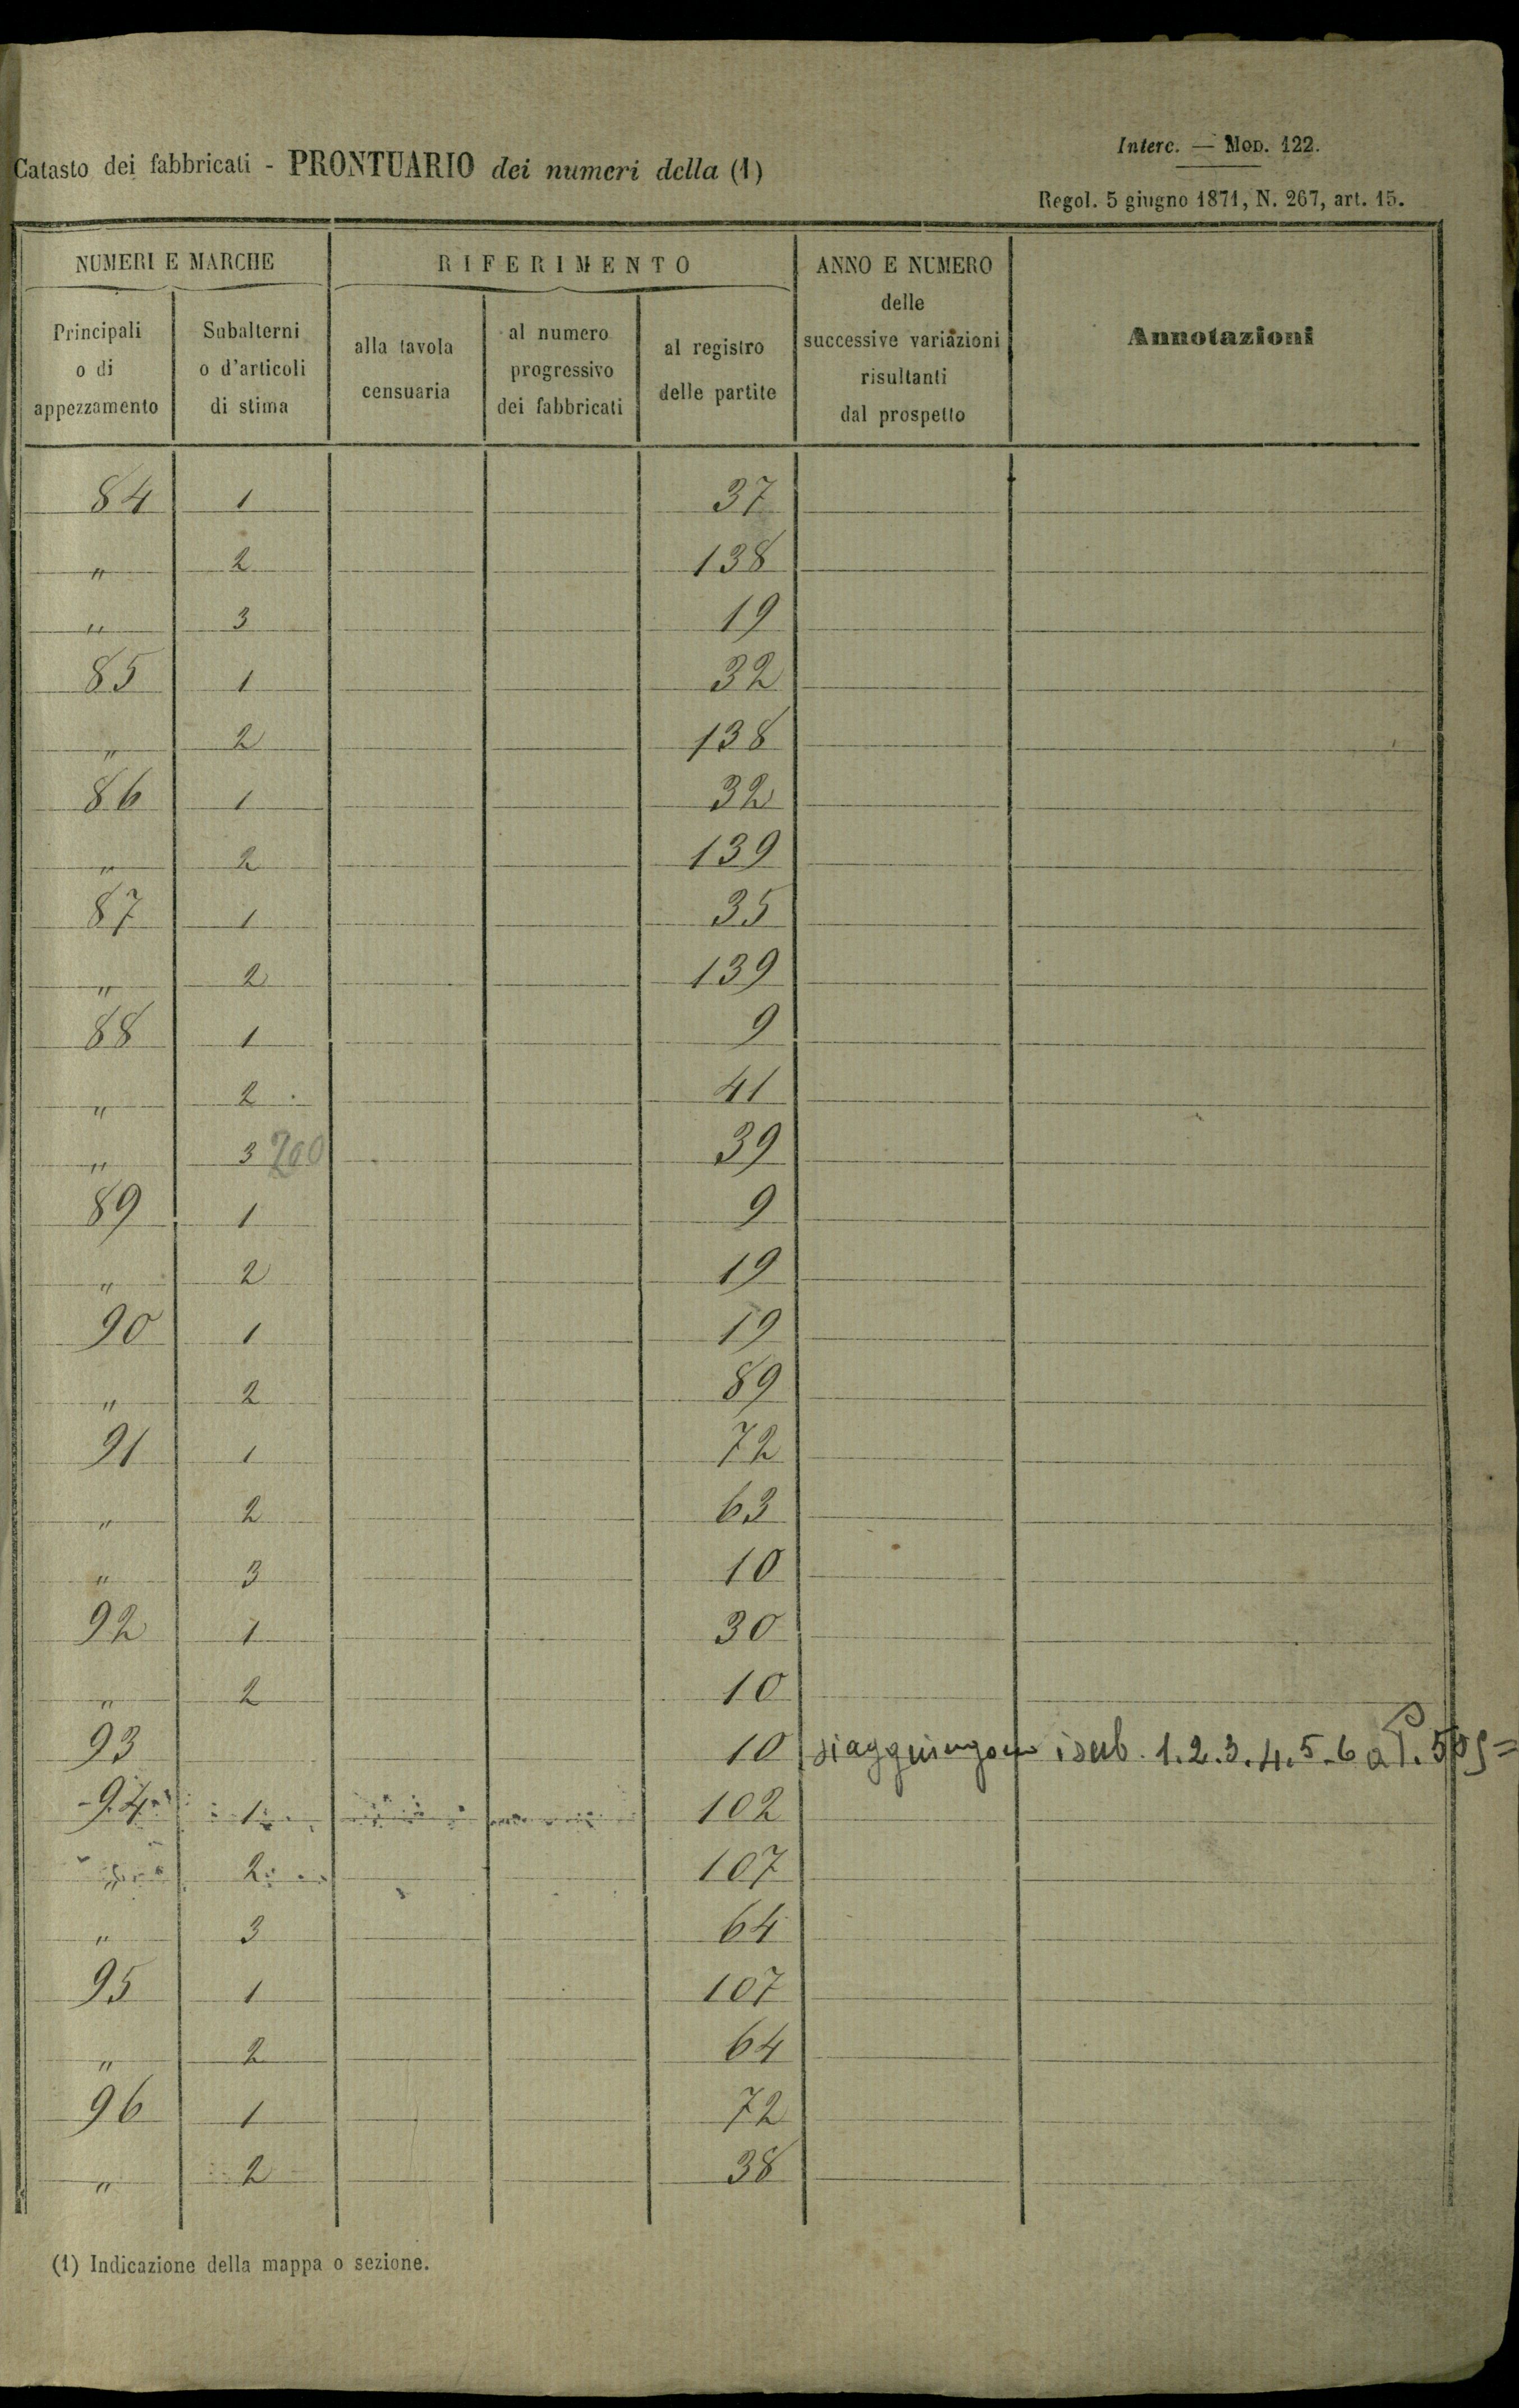 Interc. — Mod. 122.
Catasto dei fabbricati - PRONTUARIO dei numeri della (1)
Regol. 5 giugno 1871, N. 267, art. 15.
NUMERI E MARCHE
RIFERIMENTO
ANNO E NUMERO delle successive variazioni risultanti dal prospetto
Annotazioni
Principali o di appezzamento
Subalterni o d'articoli di stima
alla tavola censuaria
al numero progressivo dei fabbricati
al registro delle partite
84 1 37
" 2 138
" 3 19
85 1 32
" 2 138
86 1 32
" 2 139
87 1 35
" 2 139
88 1 9
" 2 41
" 3 200 39
89 1 9
" 2 19
90 1 19
" 2 89
91 1 72
" 2 63
" 3 10
92 1 30
" 2 10
93 10 si aggiungono i sub. 1.2.3.4.5.6 a P.
94 1 102
" 2 107
" 3 64
95 1 107
" 2 64
96 1 72
" 2 38
(1) Indicazione della mappa o sezione.